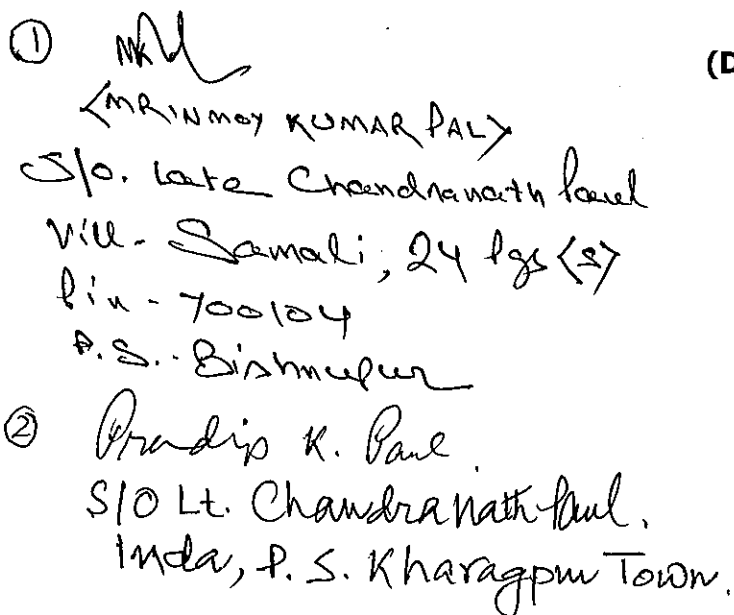 ①
(D
<MRINMOY KUMAR PAL>
S/o. Late Chandranath Paul
Vill- Samali, 24 Pgs <S>
Pin - 700104
P.S.- Bishnupur
② Pradip K. Paul
S/O Lt. Chandranath Paul.
Inda, P.S. Kharagpur Town.